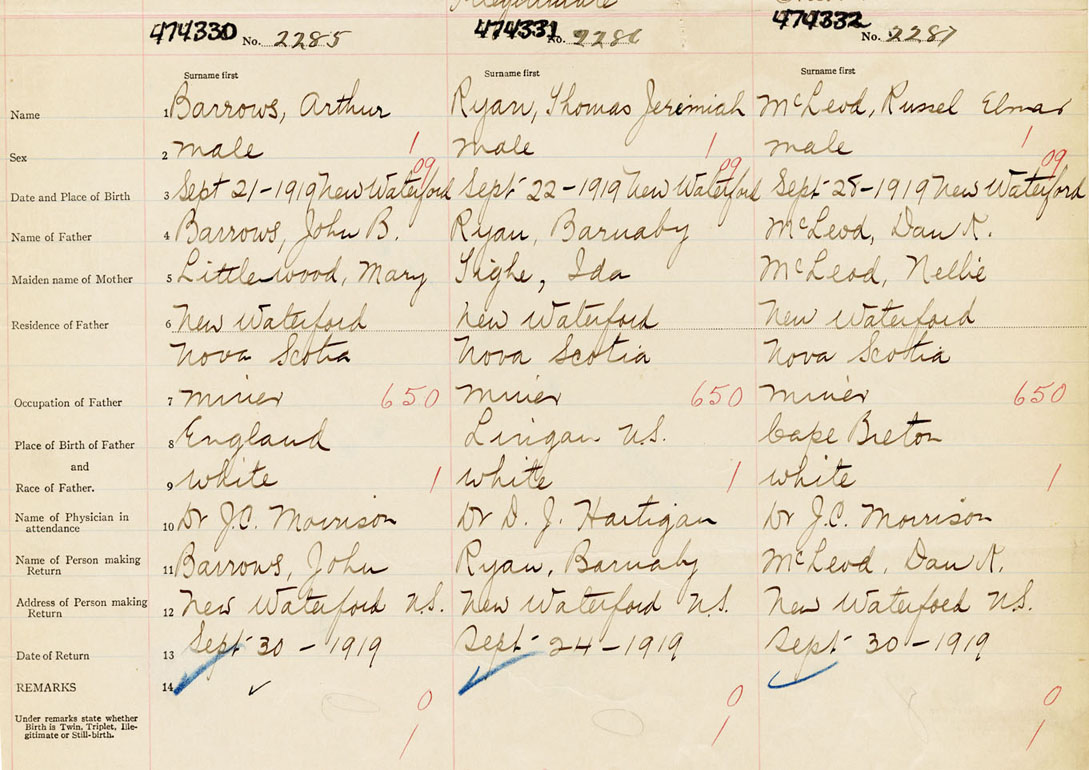 Illegitimate
474330 No. 2285 474331 No. 2286 474332 No. 2287
Surname first Surname first Surname first
Name 1 Barrows, Arthur Ryan, Thomas Jeremiah McLeod, Russel Elmar
Sex 2 male 1 male 1 male 1
09 09 09
Date and Place of Birth 3 Sept 21-1919 New Waterford Sept 22-1919 New Waterford Sept 28-1919 New Waterford
Name of Father 4 Barrows, John B. Ryan, Barnaby McLeod, Dan K.
Maiden name of Mother 5 Littlewood, Mary Tighe, Ida McLeod, Nellie
Residence of Father 6 New Waterford New Waterford New Waterford
Nova Scotia Nova Scotia Nova Scotia
Occupation of Father 7 miner 650 miner 650 miner 650
Place of Birth of Father 8 England Lingan N.S. Cape Breton
and
Race of Father. 9 white 1 white 1 white 1
Name of Physician in
attendance 10 Dr J.C. Morrison Dr D. J. Hartigan Dr J.C. Morrison
Name of Person making
Return 11 Barrows, John Ryan, Barnaby McLeod, Dan K.
Address of Person making
Return 12 New Waterford N.S. New Waterford N.S. New Waterford N.S.
Date of Return 13 Sept 30-1919 Sept 24-1919 Sept 30-1919
REMARKS 14
0 0 0
Under remarks state whether
Birth is Twin, Triplet, Ille-
gitimate or Still-birth.
1 1 1